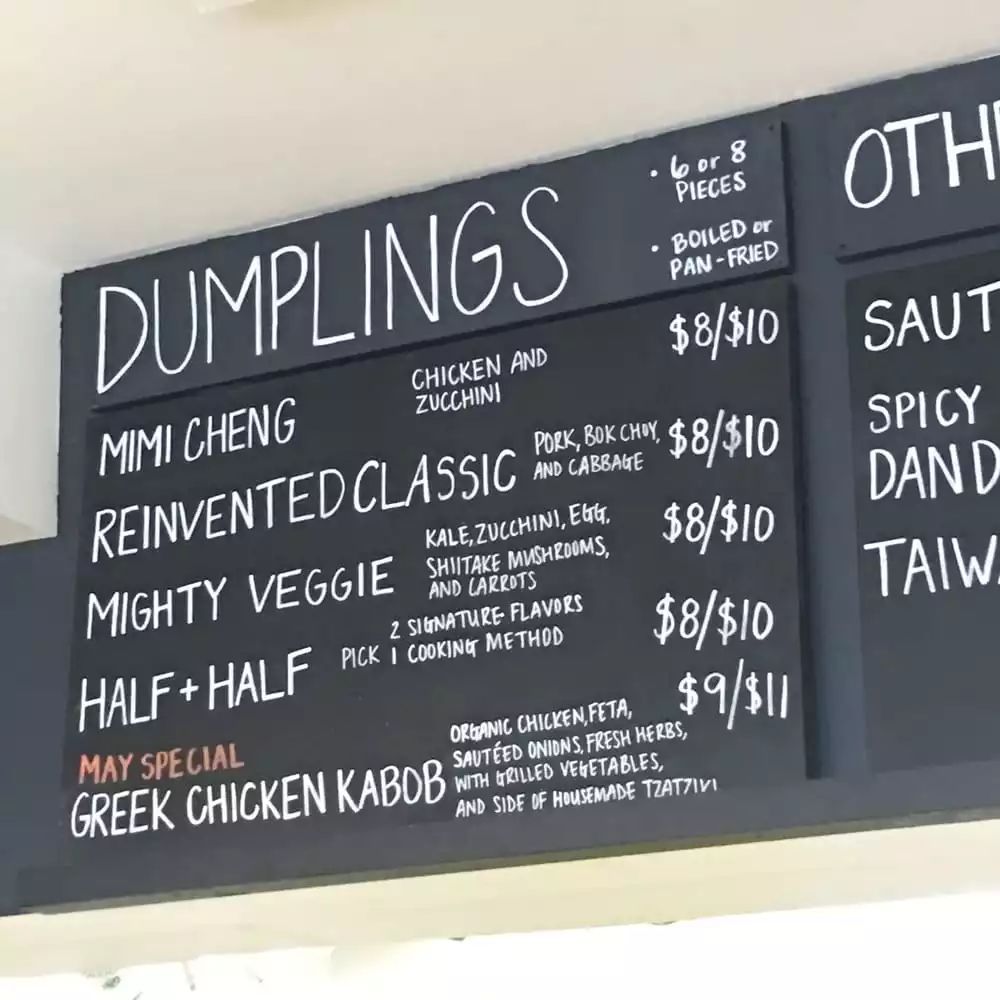 DUMPLINGS
· 6 or 8
PIECES
· BOILED or
PAN-FRIED
MIMI CHENG
CHICKEN AND
ZUCCHINI
$8/$10
REINVENTED CLASSIC
PORK, BOK CHOY,
AND CABBAGE
$8/$10
MIGHTY VEGGIE
KALE, ZUCCHINI, EGG,
SHIITAKE MUSHROOMS,
AND CARROTS
$8/$10
HALF + HALF
PICK
2 SIGNATURE FLAVORS
1 COOKING METHOD
$8/$10
MAY SPECIAL
GREEK CHICKEN KABOB
ORGANIC CHICKEN, FETA,
SAUTÉED ONIONS, FRESH HERBS,
WITH GRILLED VEGETABLES,
AND SIDE OF HOUSEMADE
$9/$11
OTH
SAUT
SPICY
DAN D
TAIW